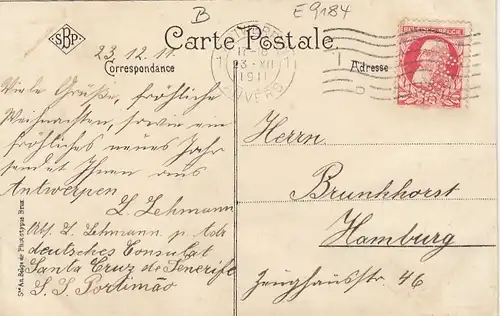 B
E 9184
SBP
Carte Postale.
23.12.11
Correspondance
Adresse
23 XII
1911
ANVERS
Viele Grüße, fröhliche
Weihnachten, sowie ein
fröhliches neues Jahr
sendet Ihnen aus
Antwerpen
L. Lehmann
Abs. L. Lehmann p. Adr.
deutsches Consulat
Santa Cruz de Tenerife
S. S. Portimão
Herrn
Brunkhorst
Hamburg
Zeughausstr. 46
Sté An. Belge de Phototypie Brux.